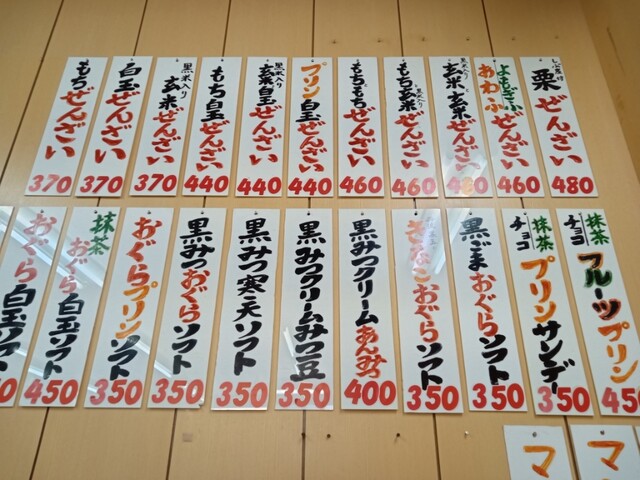 しぶ皮付 栗ぜんざい 480
よもぎふ あわふ ぜんざい 460
黒米入り 玄米玄米ぜんざい 480
もち玄米ぜんざい 460
もちもちぜんざい 460
プリン白玉ぜんざい 440
黒米入り 玄米白玉ぜんざい 440
もち白玉ぜんざい 440
黒米入り 玄米ぜんざい 370
白玉ぜんざい 370
もちぜんざい 370
抹茶 チョコ フルーツプリン 450
抹茶 チョコ プリンサンデー 350
黒ごまおぐらソフト 350
きなこおぐらソフト 350
黒みつクリームあんみつ 400
黒みつクリームみつ豆 350
黒みつ寒天ソフト 350
黒みつおぐらソフト 350
おぐらプリンソフト 350
抹茶おぐら白玉ソフト 450
おぐら白玉ソフト
マ
マ